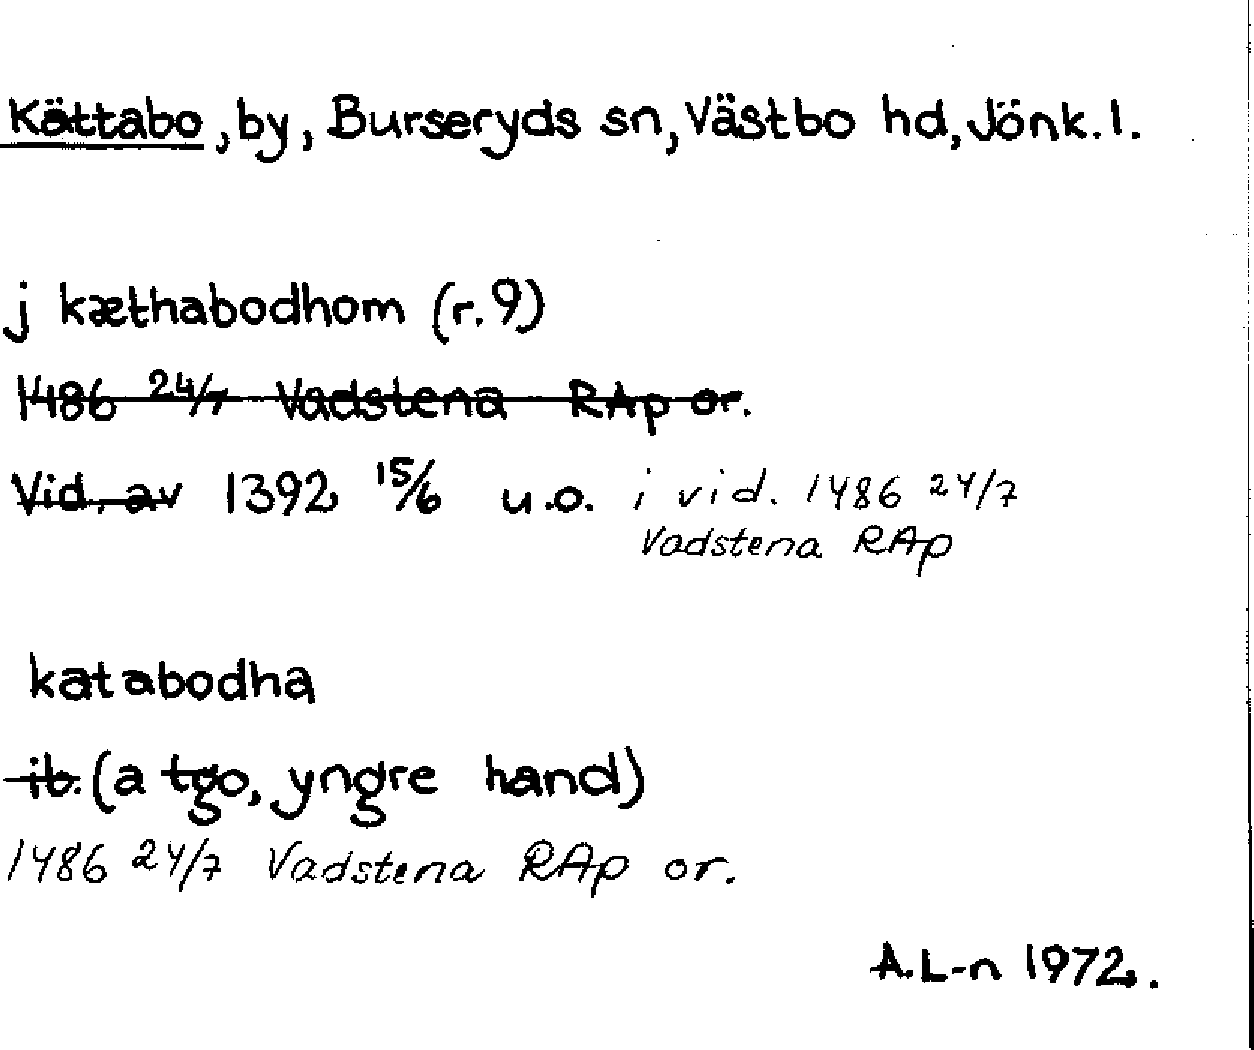 Kättabo, by, Burseryds sn, Västbo hd, Jönk. l.
j kæthabodhom (r. 9)
1486 24/7 Vadstena RAp or.
Vid. av 1392 15/6 u.o. i vid. 1486 24/7
Vadstena RAp
katabodha
ib. (a tgo, yngre hand)
1486 24/7 Vadstena RAp or.
A. L-n 1972.